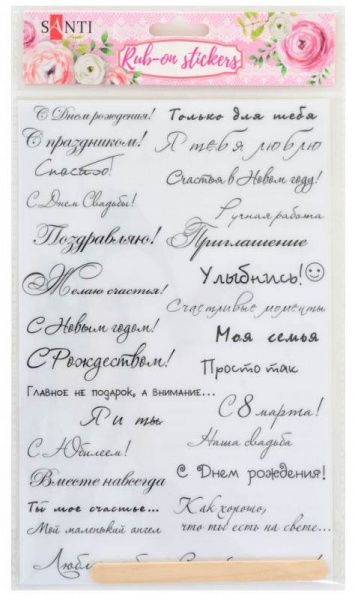 SANTI
Rub-on stickers
С Днем рождения!
С праздником!
Спасибо!
С Днем Свадьбы!
Поздравляю!
Желаю счастья!
С Новым годом!
С Рождеством!
Главное не подарок, а внимание...
Я и ты
С Юбилеем!
Вместе навсегда
Ты мое счастье...
Мой маленький ангел
Только для тебя
Я тебя люблю
Счастья в Новом году!
Ручная работа
Приглашение
Улыбнись!
Счастливые моменты
Моя семья
Просто так
С 8 марта!
Наша свадьба
С Днем рождения!
Как хорошо,
что ты есть на свете...